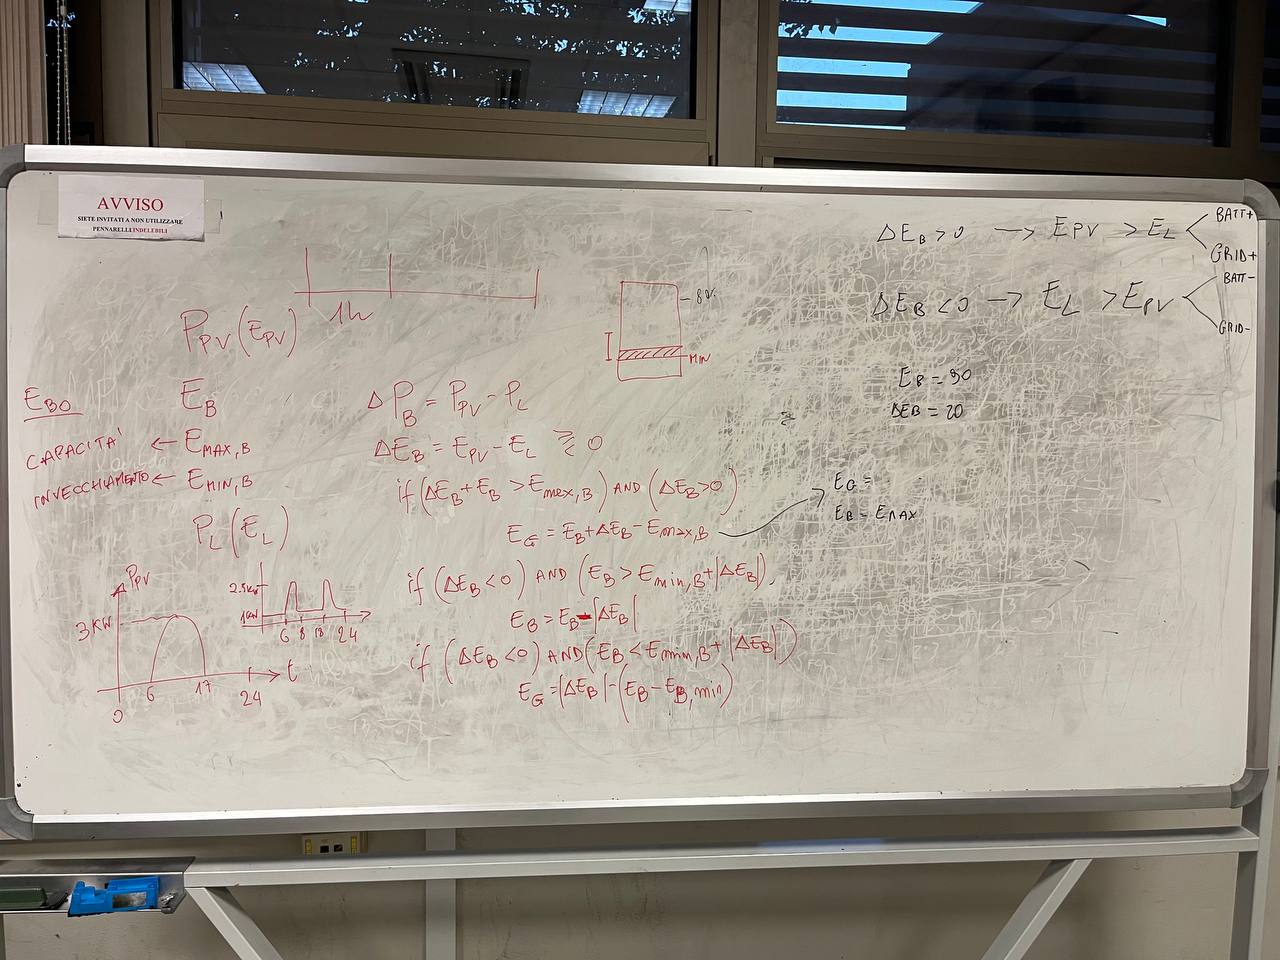 AVVISO
SIETE INVITATI A NON UTILIZZARE
PENNARELLI INDELEBILI
1h
P_PV (E_PV)
E_B0
E_B
CAPACITÀ ← E_MAX,B
INVECCHIAMENTO ← E_MIN,B
P_L (E_L)
P_PV
3KW
0
6
17
24
t
2.5KW
1KW
6 8 18 24
MIN
ΔP_B = P_PV - P_L
ΔE_B = E_PV - E_L ≷ 0
if (ΔE_B + E_B > E_max,B) AND (ΔE_B > 0)
E_G = E_B + ΔE_B - E_max,B
if (ΔE_B < 0) AND (E_B > E_min,B + |ΔE_B|)
E_B = E_B - |ΔE_B|
if (ΔE_B < 0) AND (E_B < E_min,B + |ΔE_B|)
E_G = |ΔE_B| - (E_B - E_B,min)
ΔE_B > 0 → E_PV > E_L
BATT+
GRID+
ΔE_B < 0 → E_L > E_PV
BATT-
GRID-
E_B = 90
ΔE_B = 20
E_G =
E_B = E_MAX